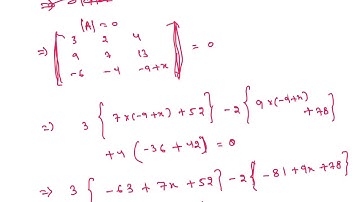 |A| = 0
=> | 3 2 4 |
| 9 7 13 | = 0
| -6 -4 -9+x |
=> 3 { 7×(-9+x) + 52 } - 2 { 9×(-9+x) + 78 }
+4 ( -36 + 42 ) = 0
=> 3 { -63 + 7x + 52 } - 2 { -81 + 9x + 78 }